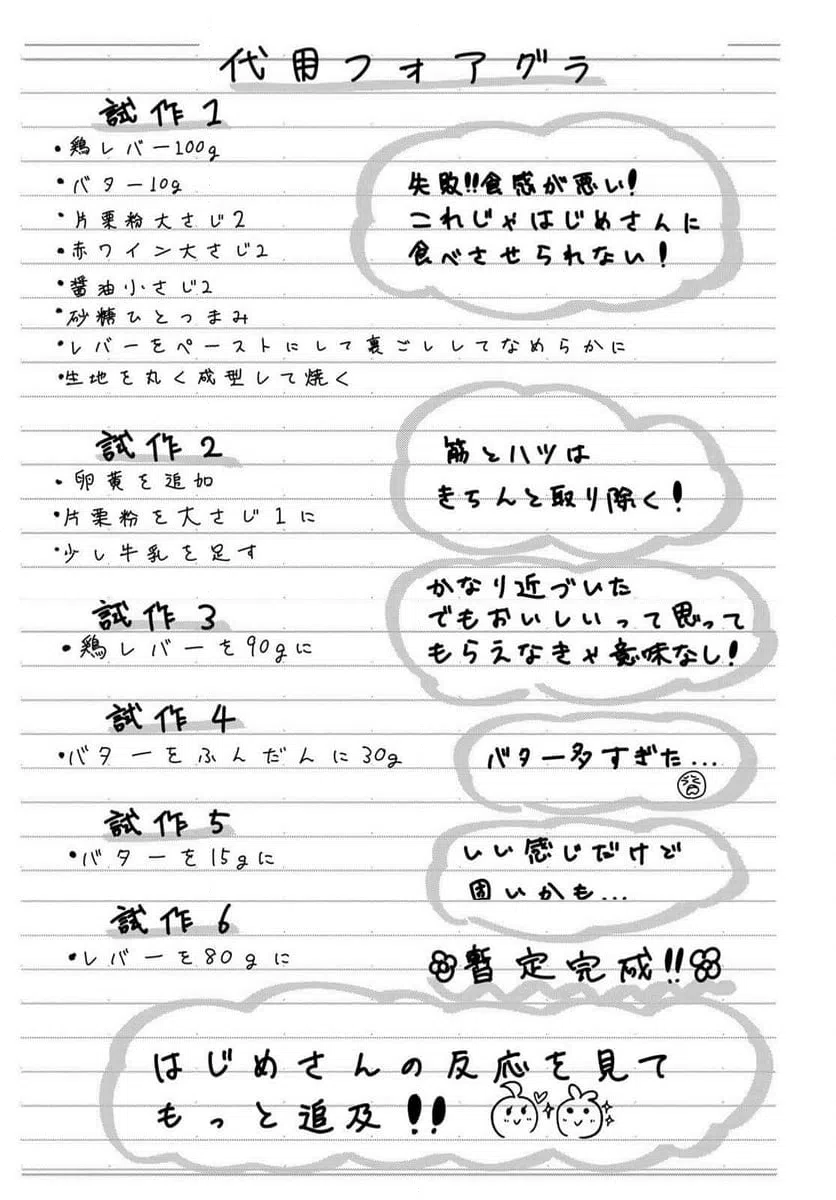 代用フォアグラ
試作1
・鶏レバー100g
・バター10g
・片栗粉大さじ2
・赤ワイン大さじ2
・醤油小さじ2
・砂糖ひとつまみ
・レバーをペーストにして裏ごししてなめらかに
・生地を丸く成型して焼く
失敗!!食感が悪い!
これじゃはじめさんに
食べさせられない!
試作2
・卵黄を追加
・片栗粉を大さじ1に
・少し牛乳を足す
筋とハツは
きちんと取り除く!
試作3
・鶏レバーを90gに
かなり近づいた
でもおいしいって思って
もらえなきゃ意味なし!
試作4
・バターをふんだんに30g
バター多すぎた...
試作5
・バターを15gに
いい感じだけど
固いかも...
試作6
・レバーを80gに
暫定完成!!
はじめさんの反応を見て
もっと追及!!